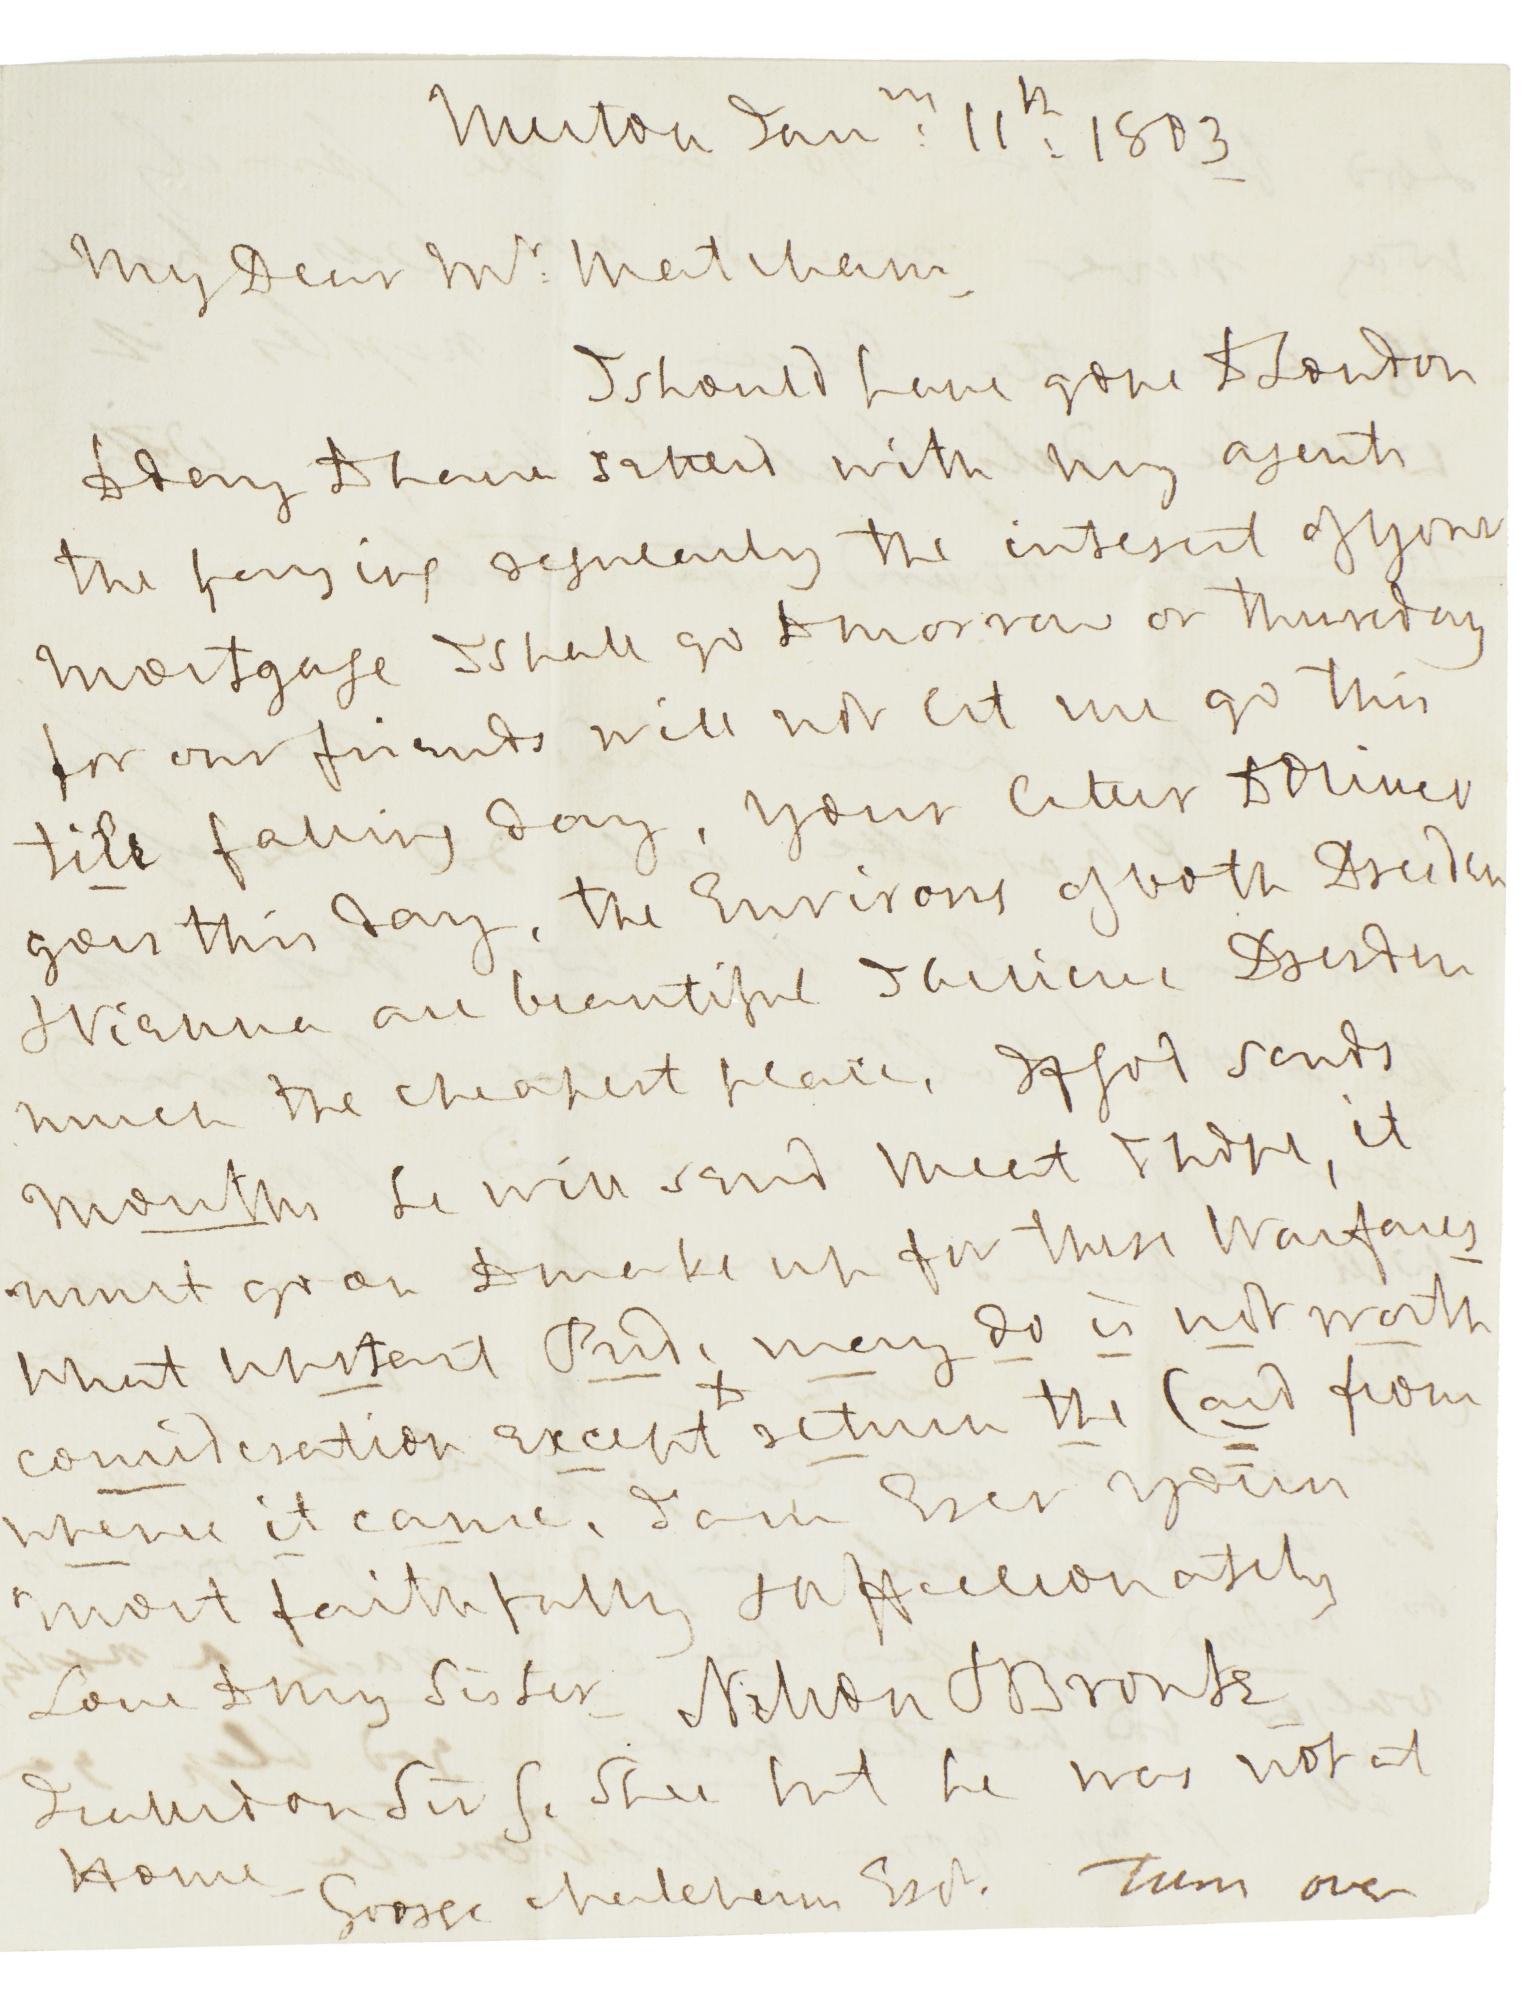 Merton Jany: 11th: 1803
My Dear Mr: Matcham
I should have gone to London
to day to have settled with my agents
the paying regularly the interest of your
Mortgage I shall go tomorrow or thursday
for our friends will not let me go this
tile falling day, your letter to Oliver
goes this day, the Environs of both Dresden
& Vienna are beautiful I believe Dresden
much the cheapest place. If God sends
Mouths he will send Meat I hope, it
must go on to make up for these Warfares
what upstart Prid. may do is not worth
consideration except to return the Card from
whence it came. I am Ever Yours
most faithfully & affectionately
Love to my Sister Nelson & Bronte
I called on Sir G. Shee but he was not at
Home
George Matcham Esqr. Turn over